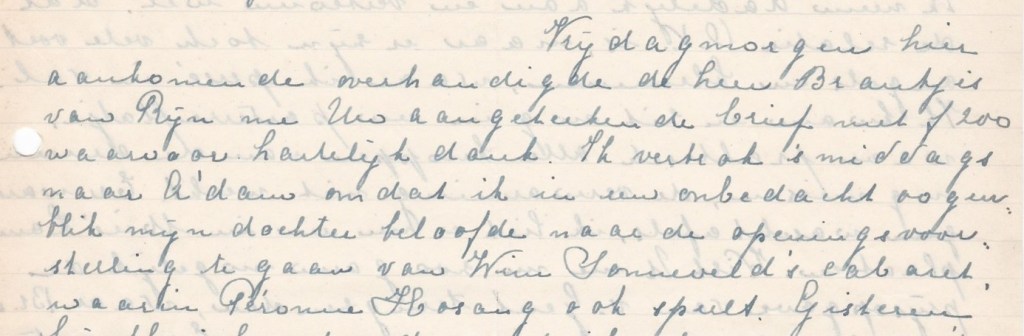 Vrijdagmorgen hier
aankomende overhandigde de heer Brantjis
van Rijn me Uw aangetekende brief met f 200
waarvoor hartelijk dank. Ik vertrok 's middags
naar A'dam omdat ik in een onbedacht oogen-
blik mijn dochter beloofde naar de openingsvoor-
stelling te gaan van Wim Sonneveld's cabaret,
waarin Péronne Hosang ook speelt. Gisteren